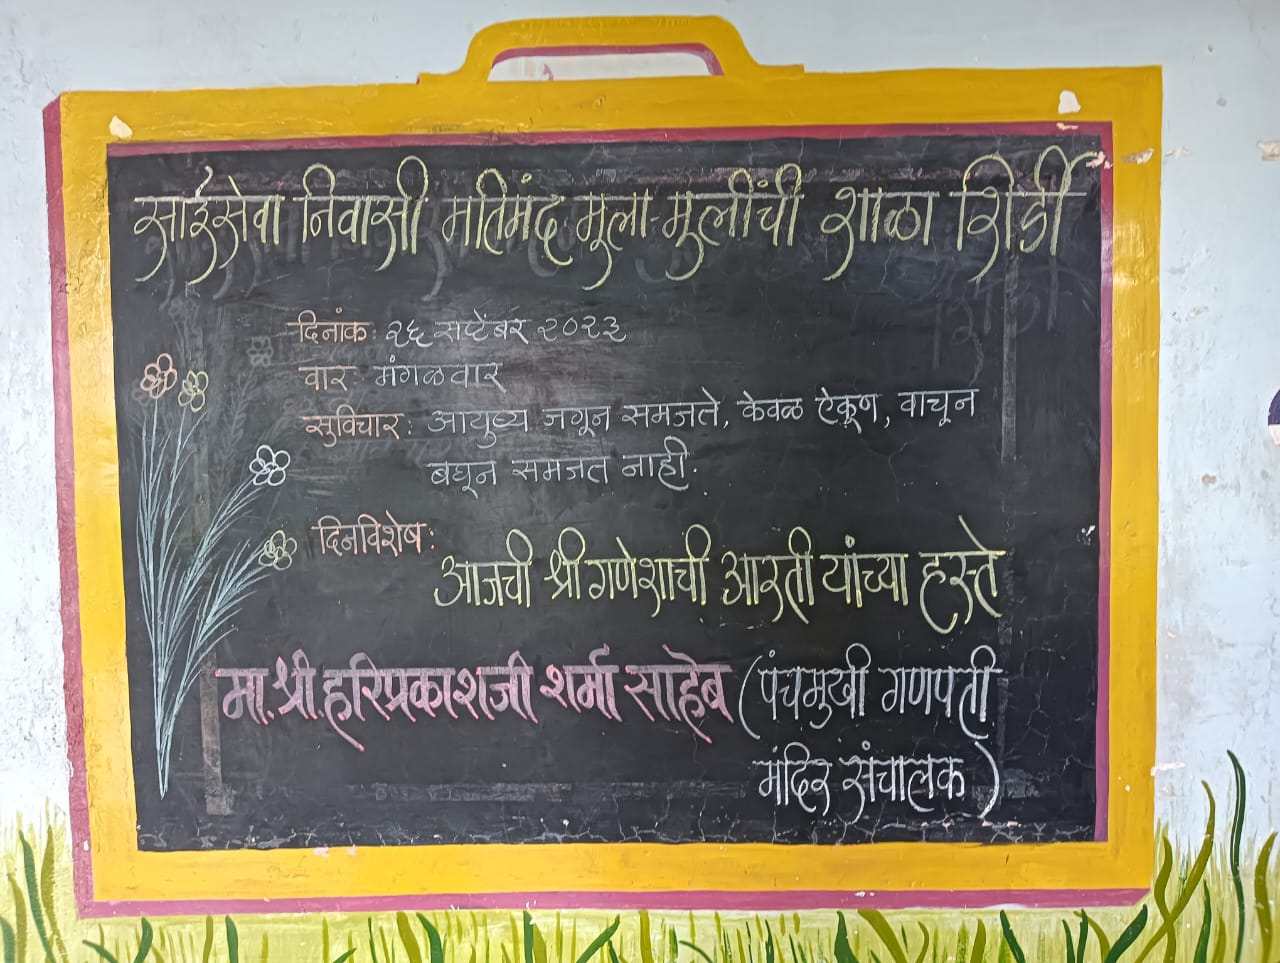 साईसेवा निवासी मतिमंद मुला-मुलींची शाळा शिर्डी
दिनांक: २६ सप्टेंबर २०२३
वार: मंगळवार
सुविचार: आयुष्य जगून समजते, केवळ ऐकूण, वाचून
बघून समजत नाही.
दिनविशेष:
आजची श्री गणेशाची आरती यांच्या हस्ते
मा. श्री. हरिप्रकाशजी शर्मा साहेब (पंचमुखी गणपती
मंदिर संचालक)